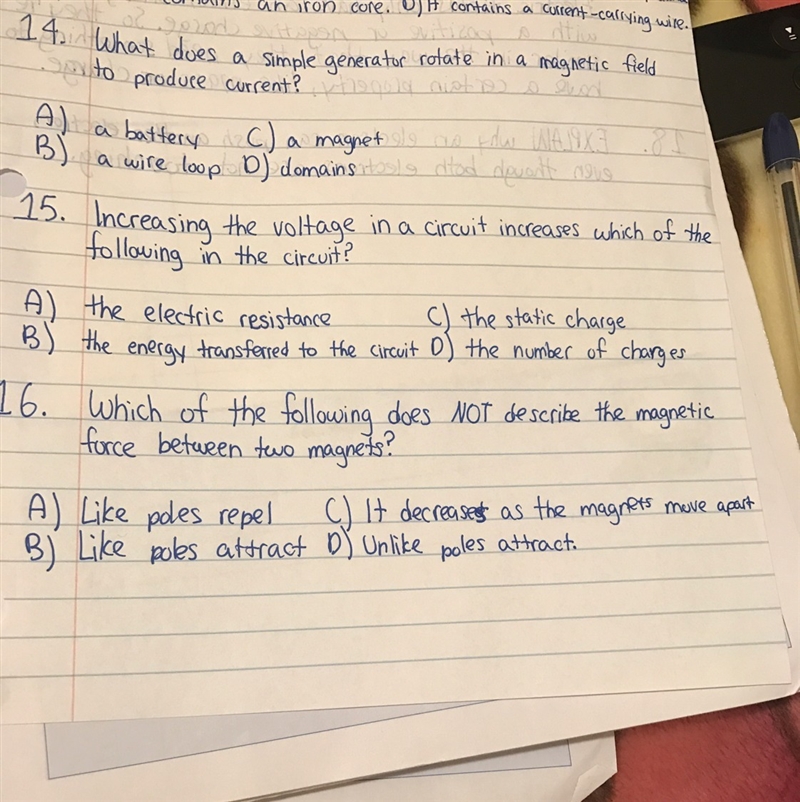 an iron core. D) It contains a current-carrying wire.
14. What does a simple generator rotate in a magnetic field
to produce current?
A) a battery C.) a magnet
B) a wire loop D) domains
15. Increasing the voltage in a circuit increases which of the
following in the circuit?
A) the electric resistance C) the static charge
B) the energy transferred to the circuit D) the number of charges
16. Which of the following does NOT describe the magnetic
force between two magnets?
A) Like poles repel C) It decreases as the magnets move apart
B) Like poles attract D) Unlike poles attract.